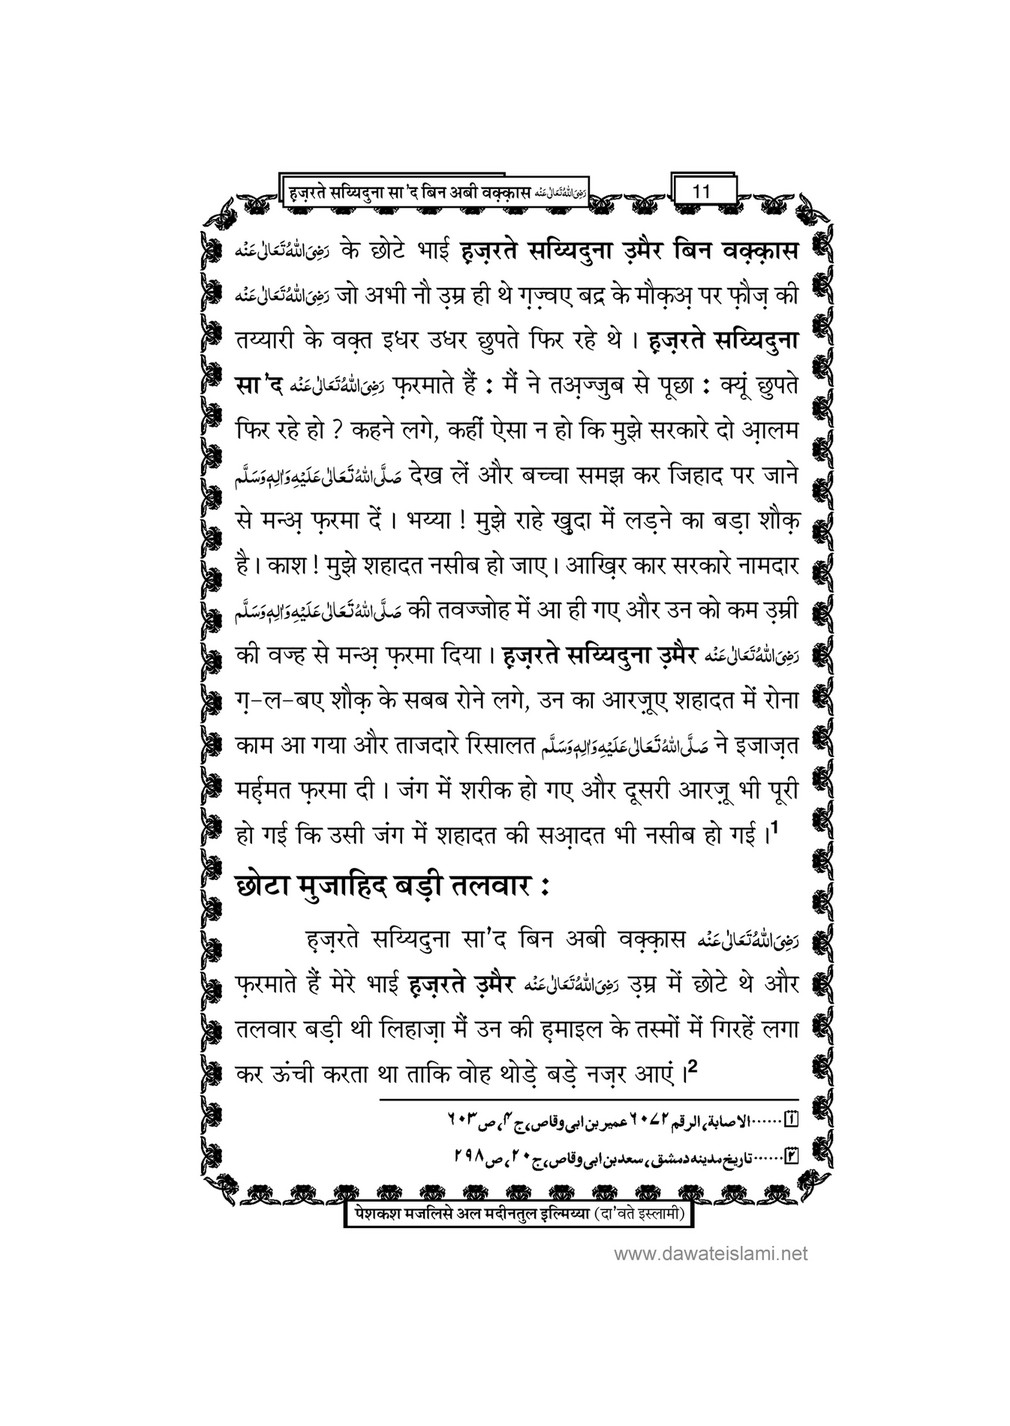 हज़रते सय्यिदुना सा'द बिन अबी वक़्क़ास رَضِیَ اللّٰهُ تَعَالٰی عَنْه
11
رَضِیَ اللّٰهُ تَعَالٰی عَنْه के छोटे भाई ह़ज़रते सय्यिदुना उ़मैर बिन वक़्क़ास
رَضِیَ اللّٰهُ تَعَالٰی عَنْه जो अभी नौ उ़म्र ही थे ग़ज़्वए बद्र के मौक़अ़ पर फ़ौज़ की
तय्यारी के वक़्त इधर उधर छुपते फिर रहे थे । ह़ज़रते सय्यिदुना
सा'द رَضِیَ اللّٰهُ تَعَالٰی عَنْه फ़रमाते हैं : मैं ने तअ़ज्जुब से पूछा : क्यूं छुपते
फिर रहे हो ? कहने लगे, कहीं ऐसा न हो कि मुझे सरकारे दो अ़ालम
صَلَّی اللّٰهُ تَعَالٰی عَلَیْهِ وَاٰلِهٖ وَسَلَّم देख लें और बच्चा समझ कर जिहाद पर जाने
से मन्अ़ फ़रमा दें । भय्या ! मुझे राहे ख़ुदा में लड़ने का बड़ा शौक़
है । काश ! मुझे शहादत नसीब हो जाए । आख़िर कार सरकारे नामदार
صَلَّی اللّٰهُ تَعَالٰی عَلَیْهِ وَاٰلِهٖ وَسَلَّم की तवज्जोह में आ ही गए और उन को कम उ़म्री
की वज्ह से मन्अ़ फ़रमा दिया । ह़ज़रते सय्यिदुना उ़मैर رَضِیَ اللّٰهُ تَعَالٰی عَنْه
ग़-ल-बए शौक़ के सबब रोने लगे, उन का आरज़ूए शहादत में रोना
काम आ गया और ताजदारे रिसालत صَلَّی اللّٰهُ تَعَالٰی عَلَیْهِ وَاٰلِهٖ وَسَلَّم ने इजाज़त
मर्ह़मत फ़रमा दी । जंग में शरीक हो गए और दूसरी आरज़ू भी पूरी
हो गई कि उसी जंग में शहादत की सअ़ादत भी नसीब हो गई ।1
छोटा मुजाहिद बड़ी तलवार :
ह़ज़रते सय्यिदुना सा'द बिन अबी वक़्क़ास رَضِیَ اللّٰهُ تَعَالٰی عَنْه
फ़रमाते हैं मेरे भाई ह़ज़रते उ़मैर رَضِیَ اللّٰهُ تَعَالٰی عَنْه उ़म्र में छोटे थे और
तलवार बड़ी थी लिहाज़ा मैं उन की ह़माइल के तस्मों में गिरहें लगा
कर ऊंची करता था ताकि वोह थोड़े बड़े नज़र आएं ।2
۱......الاصابة، الرقم ۶۰۷۲ عمیر بن ابی وقاص، ج۴، ص۶۰۳
۲......تاریخ مدینه دمشق، سعد بن ابی وقاص، ج۲۰، ص۲۹۸
पेशकश मजलिसे अल मदीनतुल इल्मिय्या (दा'वते इस्लामी)
www.dawateislami.net